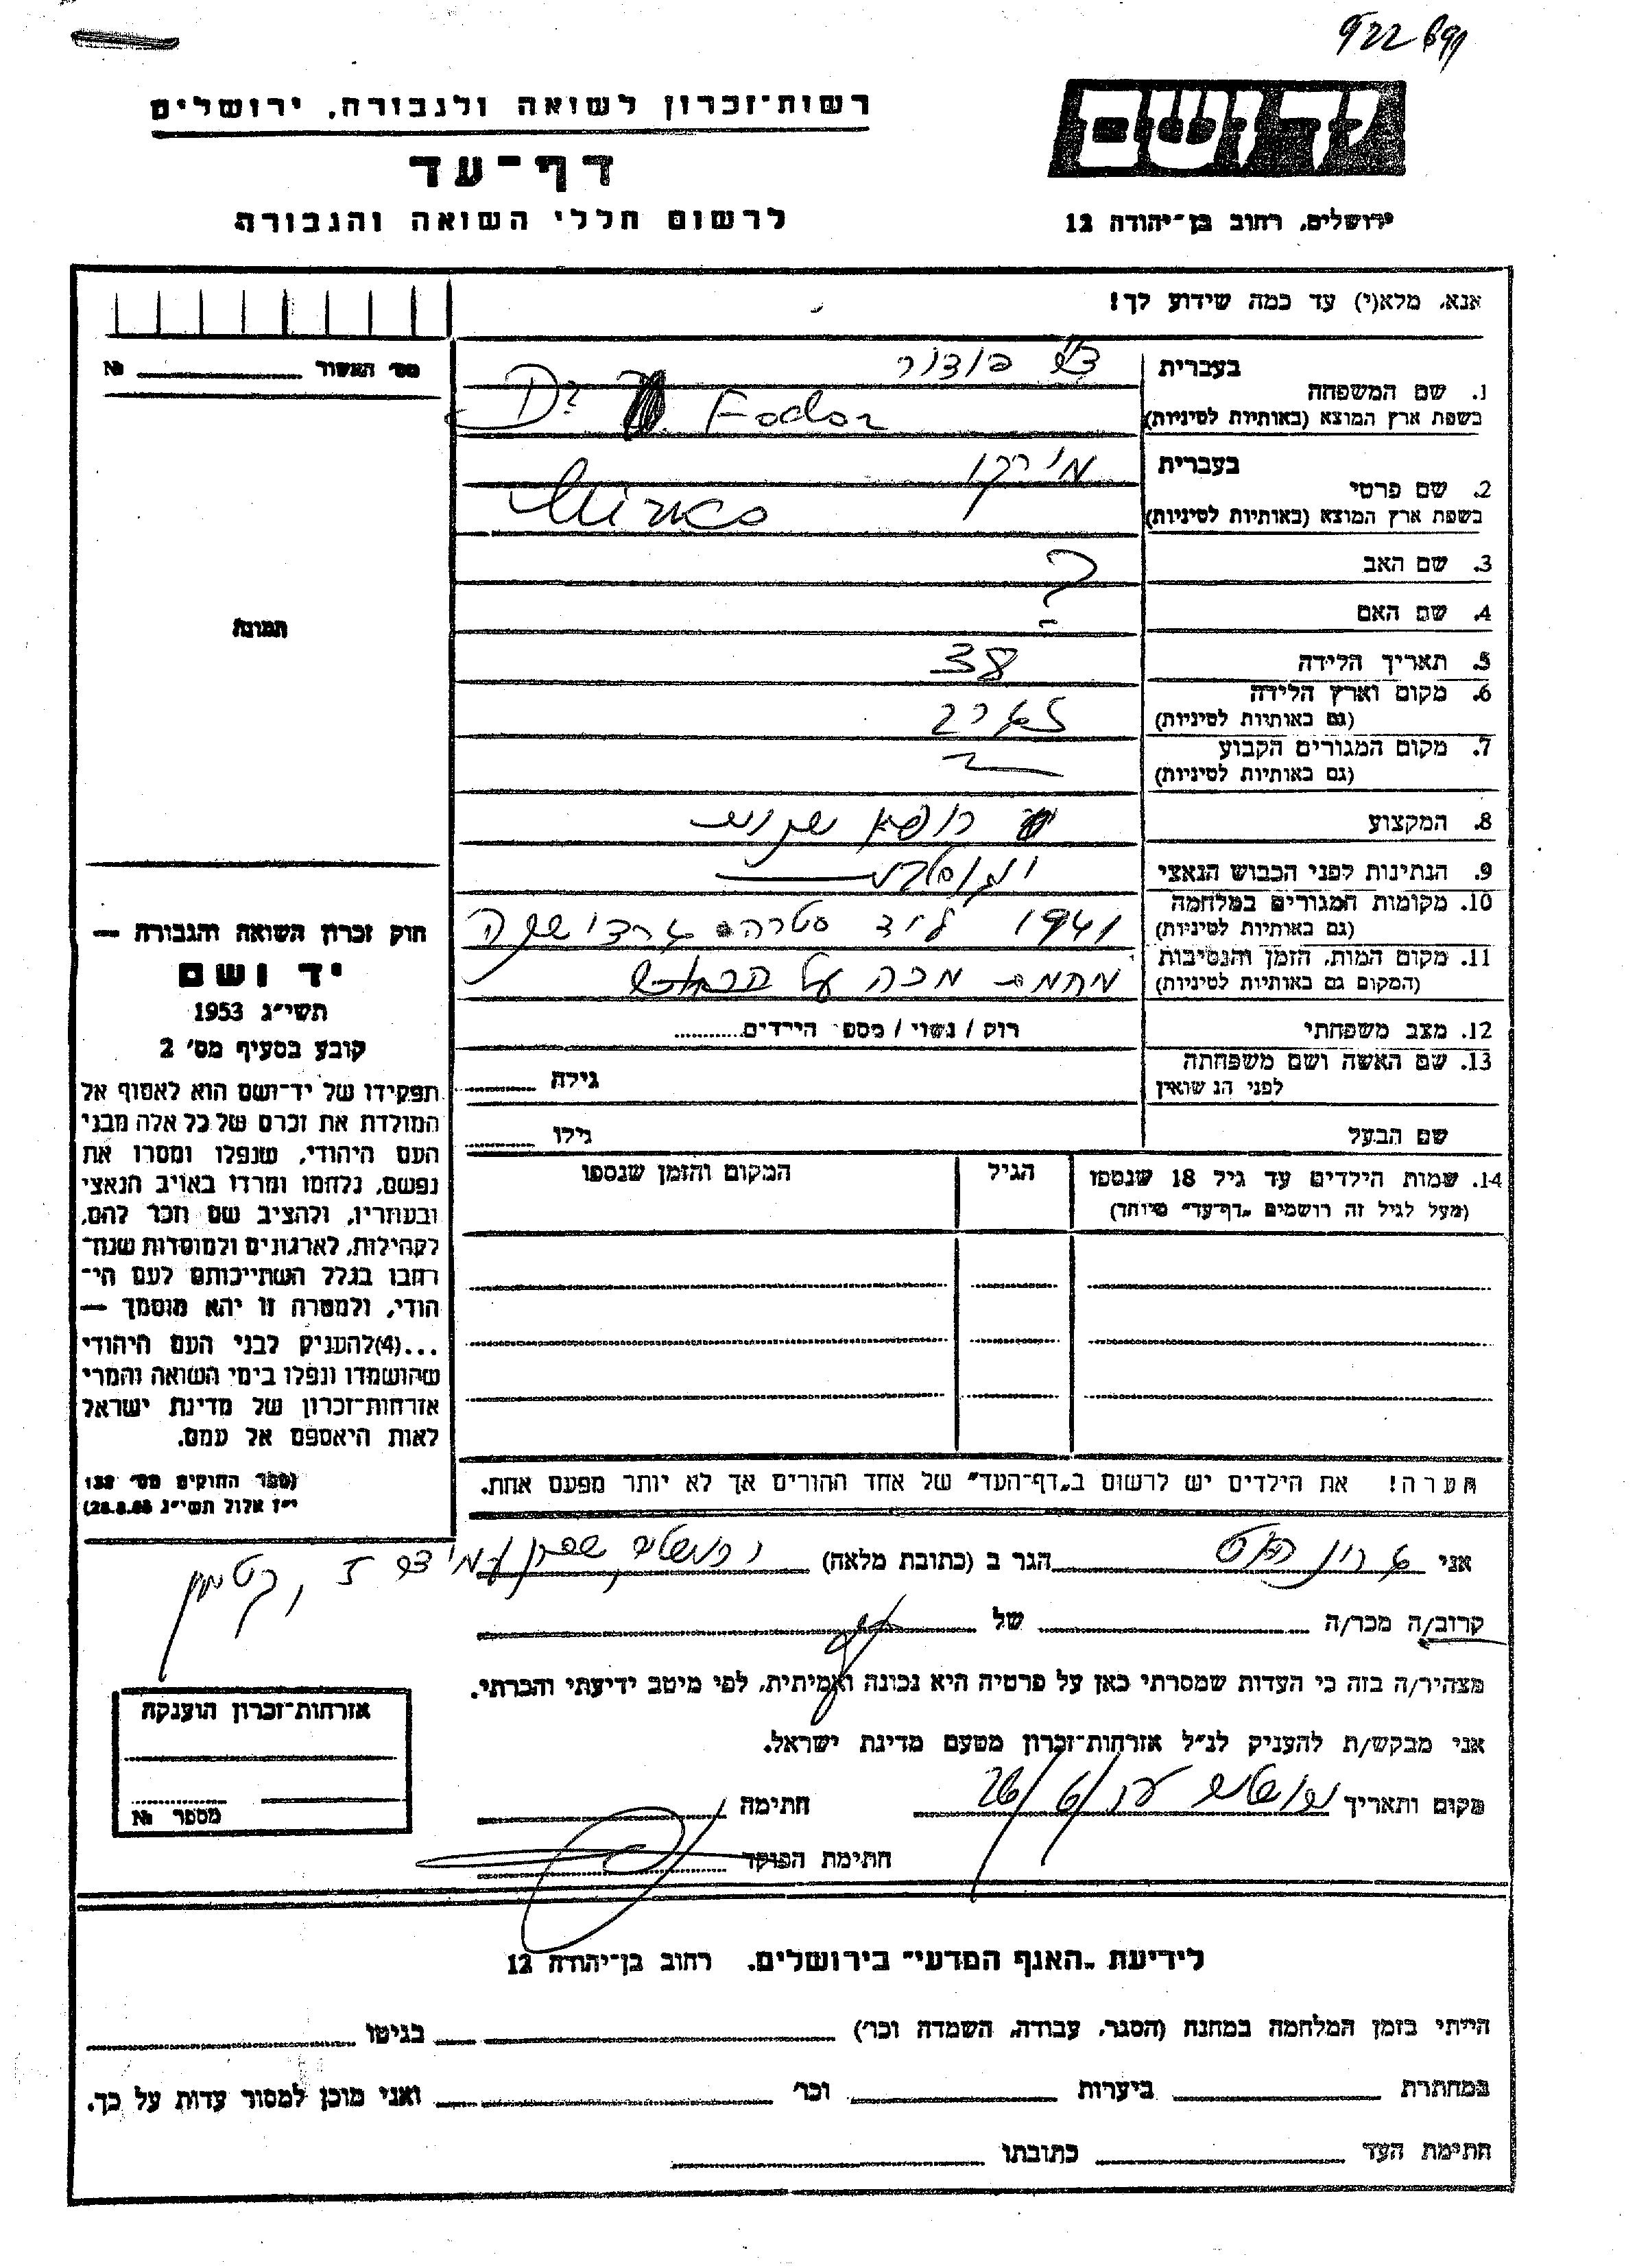 רשות־זכרון לשואה ולגבורה, ירושלים
דף־עד
לרשום חללי השואה והגבורה
יד ושם
ירושלים, רחוב בן־יהודה 12
אנא, מלא(י) עד כמה שידוע לך!
מס׳ האשור № 
1. שם המשפחה
בעברית ד״ר פודור
בשפת ארץ המוצא (באותיות לטיניות) Dr Fodor
2. שם פרטי
בעברית מירקו
בשפת ארץ המוצא (באותיות לטיניות) Mirko
3. שם האב ?
4. שם האם
5. תאריך הלידה 38
6. מקום וארץ הלידה
(גם באותיות לטיניות)
7. מקום המגורים הקבוע
(גם באותיות לטיניות)
8. המקצוע רופא
9. הנתינות לפני הכבוש הנאצי
10. מקומות המגורים במלחמה
(גם באותיות לטיניות) 1941 ליד
11. מקום המות, הזמן והנסיבות
(המקום גם באותיות לטיניות) מכה על
12. מצב משפחתי רוק / נשוי / מספר הילדים
13. שם האשה ושם משפחתה גילה
לפני הנשואין
שם הבעל גילו
14. שמות הילדים עד גיל 18 שנספו הגיל המקום והזמן שנספו
(מעל לגיל זה רושמים „דף־עד״ מיוחד)
הערה! את הילדים יש לרשום ב„דף־העד״ של אחד ההורים אך לא יותר מפעם אחת.
תמונה
חוק זכרון השואה והגבורה —
יד ושם
תשי״ג 1953
קובע בסעיף מס׳ 2
תפקידו של יד־ושם הוא לאסוף אל
המולדת את זכרם של כל אלה מבני
העם היהודי, שנפלו ומסרו את
נפשם, נלחמו ומרדו באויב הנאצי
ובעוזריו, ולהציב שם וזכר להם,
לקהילות, לארגונים ולמוסדות שנח־
רבו בגלל השתייכותם לעם הי־
הודי, ולמטרה זו יהא מוסמך —
...(4)להעניק לבני העם היהודי
שהושמדו ונפלו בימי השואה והמרי
אזרחות־זכרון של מדינת ישראל
לאות היאספם אל עמם.
(ספר החוקים מס׳ 132
י״ז אלול תשי״ג 28.8.53)
אני הגר ב (כתובת מלאה)
קרוב/ה מכר/ה של
מצהיר/ה בזה כי העדות שמסרתי כאן על פרטיה היא נכונה ואמיתית, לפי מיטב ידיעתי והכרתי.
אני מבקש/ת להעניק לנ״ל אזרחות־זכרון מטעם מדינת ישראל.
מקום ותאריך חתימה
חתימת הפוקד
אזרחות־זכרון הוענקה
מספר №
לידיעת „האגף המדעי״ בירושלים, רחוב בן־יהודה 12
הייתי בזמן המלחמה במחנה (הסגר, עבודה, השמדה וכו׳) בגיטו
במחתרת ביערות וכו׳ ואני מוכן למסור עדות על כך.
חתימת העד כתובתו